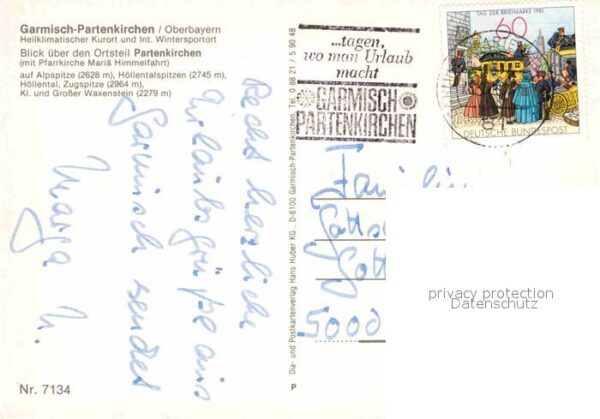 Garmisch-Partenkirchen / Oberbayern
Heilklimatischer Kurort und Int. Wintersportort
Blick über den Ortsteil Partenkirchen
(mit Pfarrkirche Mariä Himmelfahrt)
auf Alpspitze (2628 m), Höllentalspitzen (2745 m),
Höllental, Zugspitze (2964 m),
Kl. und Großer Waxenstein (2279 m)
Recht herzliche
Urlaubsgrüße aus
Garmisch sendet
Nr. 7134
Dia- und Postkartenverlag Hans Huber KG., D-8100 Garmisch-Partenkirchen, Tel. 0 88 21 / 5 90 48
P
...tagen,
wo man Urlaub
macht
GARMISCH
PARTENKIRCHEN
TAG DER BRIEFMARKE 1981
60
DEUTSCHE BUNDESPOST
Familie
5000
privacy protection
Datenschutz